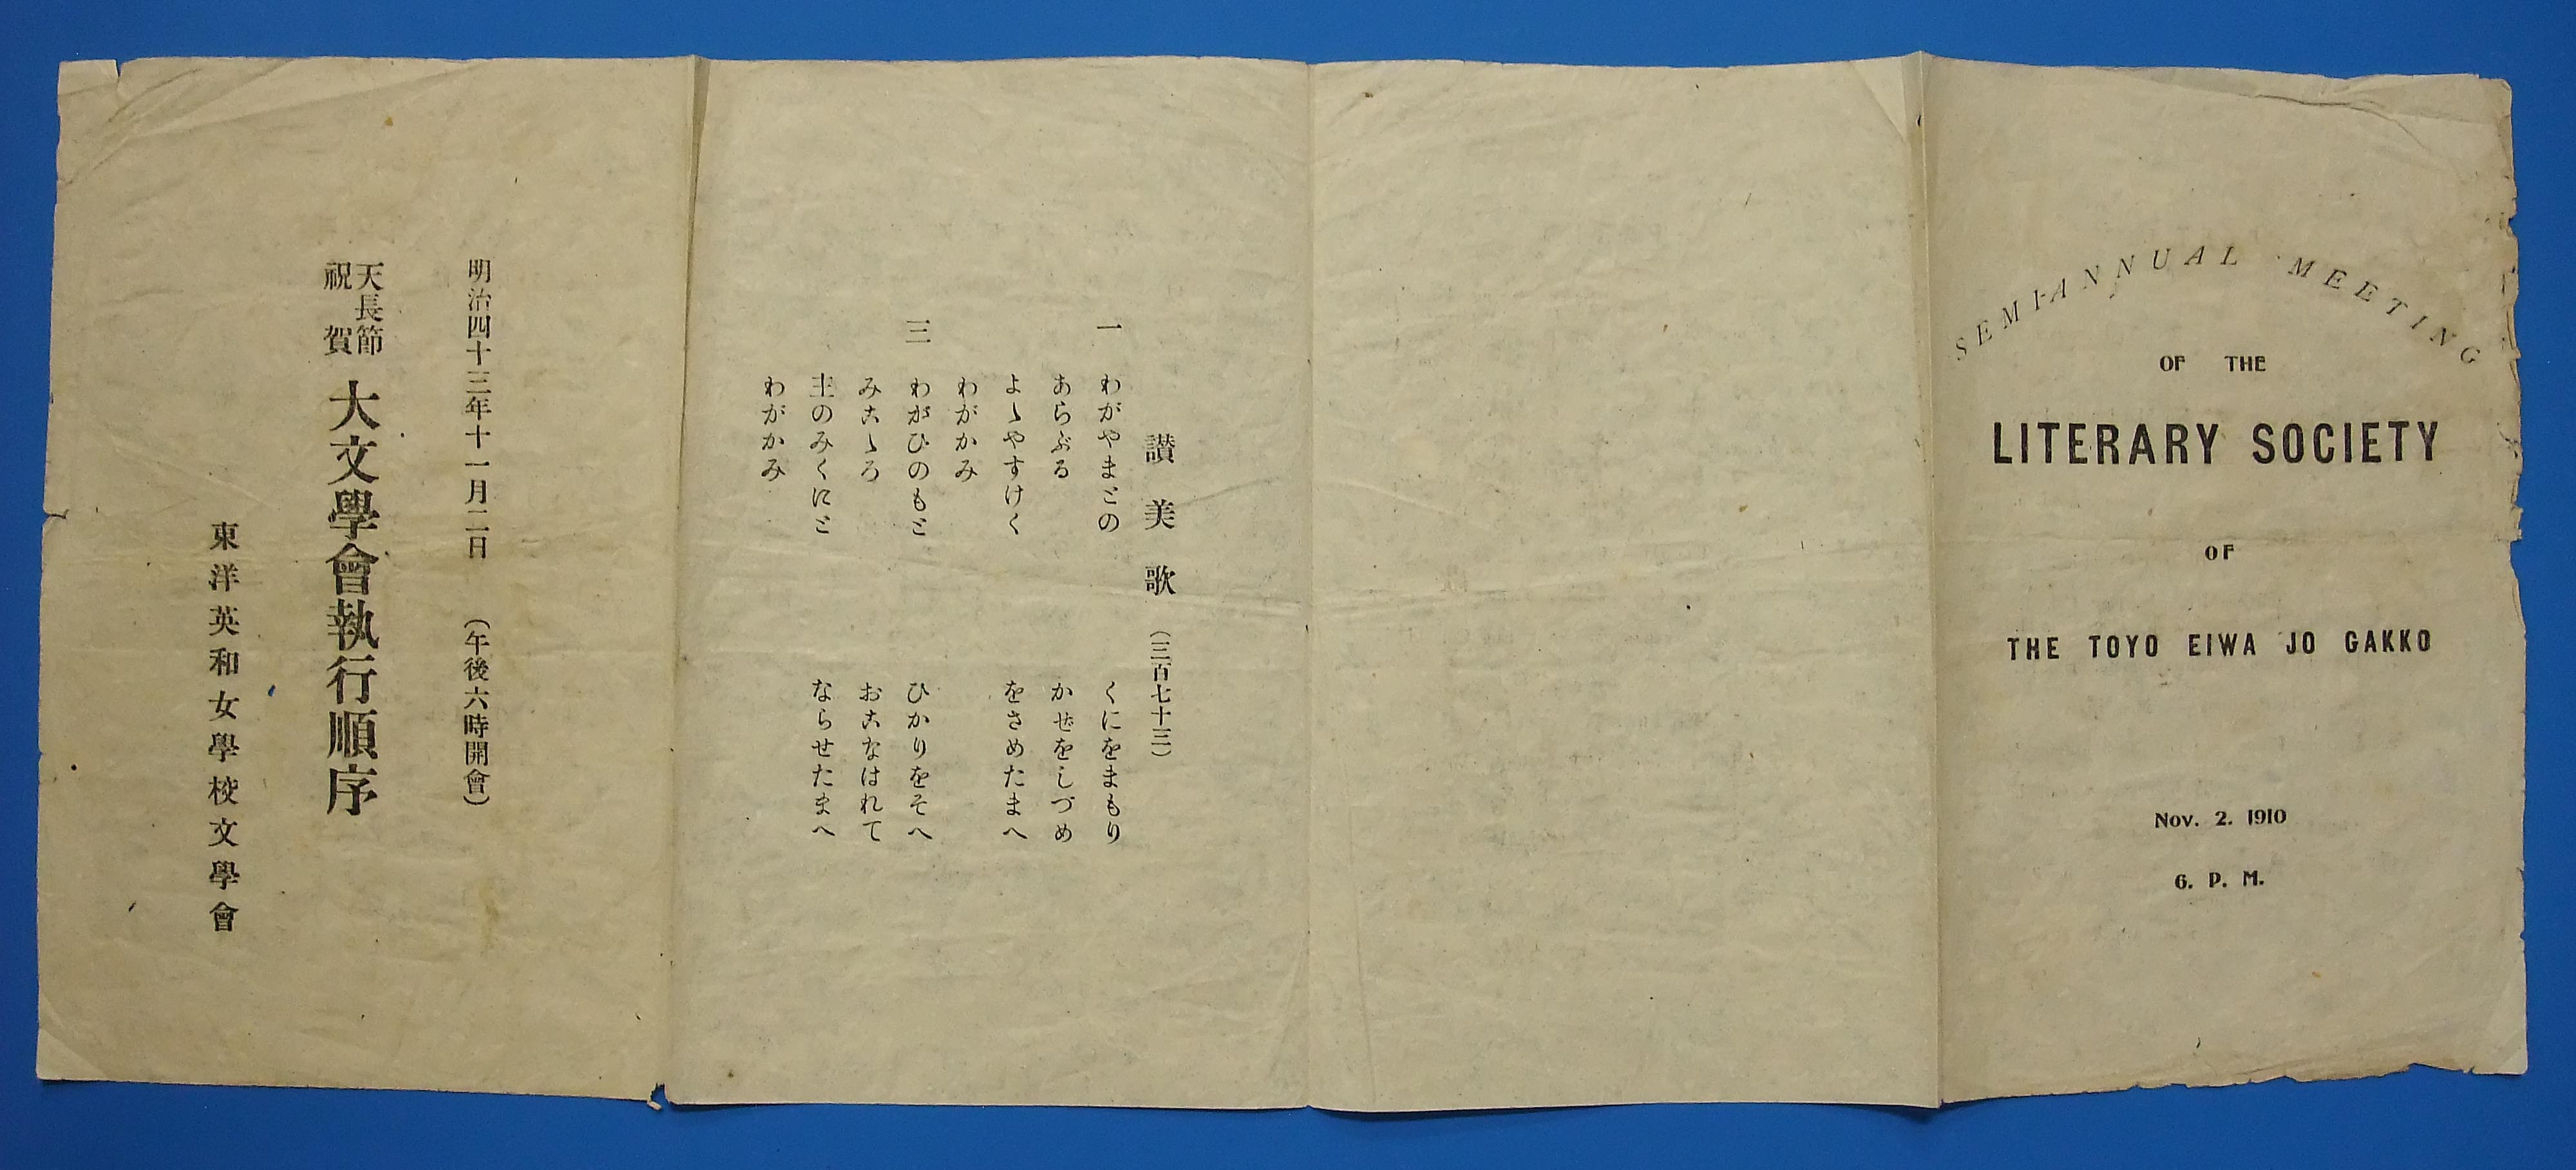 SEMI-ANNUAL MEETING
OF THE
LITERARY SOCIETY
OF
THE TOYO EIWA JO GAKKO
Nov. 2. 1910
6. P. M.
讃美歌（三百七十三）
一 わがやまとの くにをまもり
あらぶる かぜをしづめ
よゝやすけく をさめたまへ
わがかみ
三 わがひのもと ひかりをそへ
みこゝろ おこなはれて
主のみくにと ならせたまへ
わがかみ
明治四十三年十一月二日 （午後六時開會）
天長節祝賀 大文學會執行順序
東洋英和女學校文學會